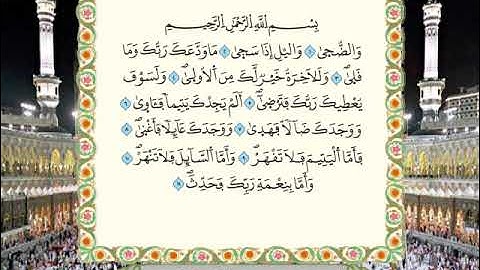 بِسْمِ اللَّهِ الرَّحْمَٰنِ الرَّحِيمِ
وَالضُّحَىٰ ١ وَاللَّيْلِ إِذَا سَجَىٰ ٢ مَا وَدَّعَكَ رَبُّكَ وَمَا
قَلَىٰ ٣ وَلَلْآخِرَةُ خَيْرٌ لَّكَ مِنَ الْأُولَىٰ ٤ وَلَسَوْفَ
يُعْطِيكَ رَبُّكَ فَتَرْضَىٰ ٥ أَلَمْ يَجِدْكَ يَتِيمًا فَآوَىٰ ٦
وَوَجَدَكَ ضَالًّا فَهَدَىٰ ٧ وَوَجَدَكَ عَائِلًا فَأَغْنَىٰ ٨
فَأَمَّا الْيَتِيمَ فَلَا تَقْهَرْ ٩ وَأَمَّا السَّائِلَ فَلَا تَنْهَرْ ١٠
وَأَمَّا بِنِعْمَةِ رَبِّكَ فَحَدِّثْ ١١